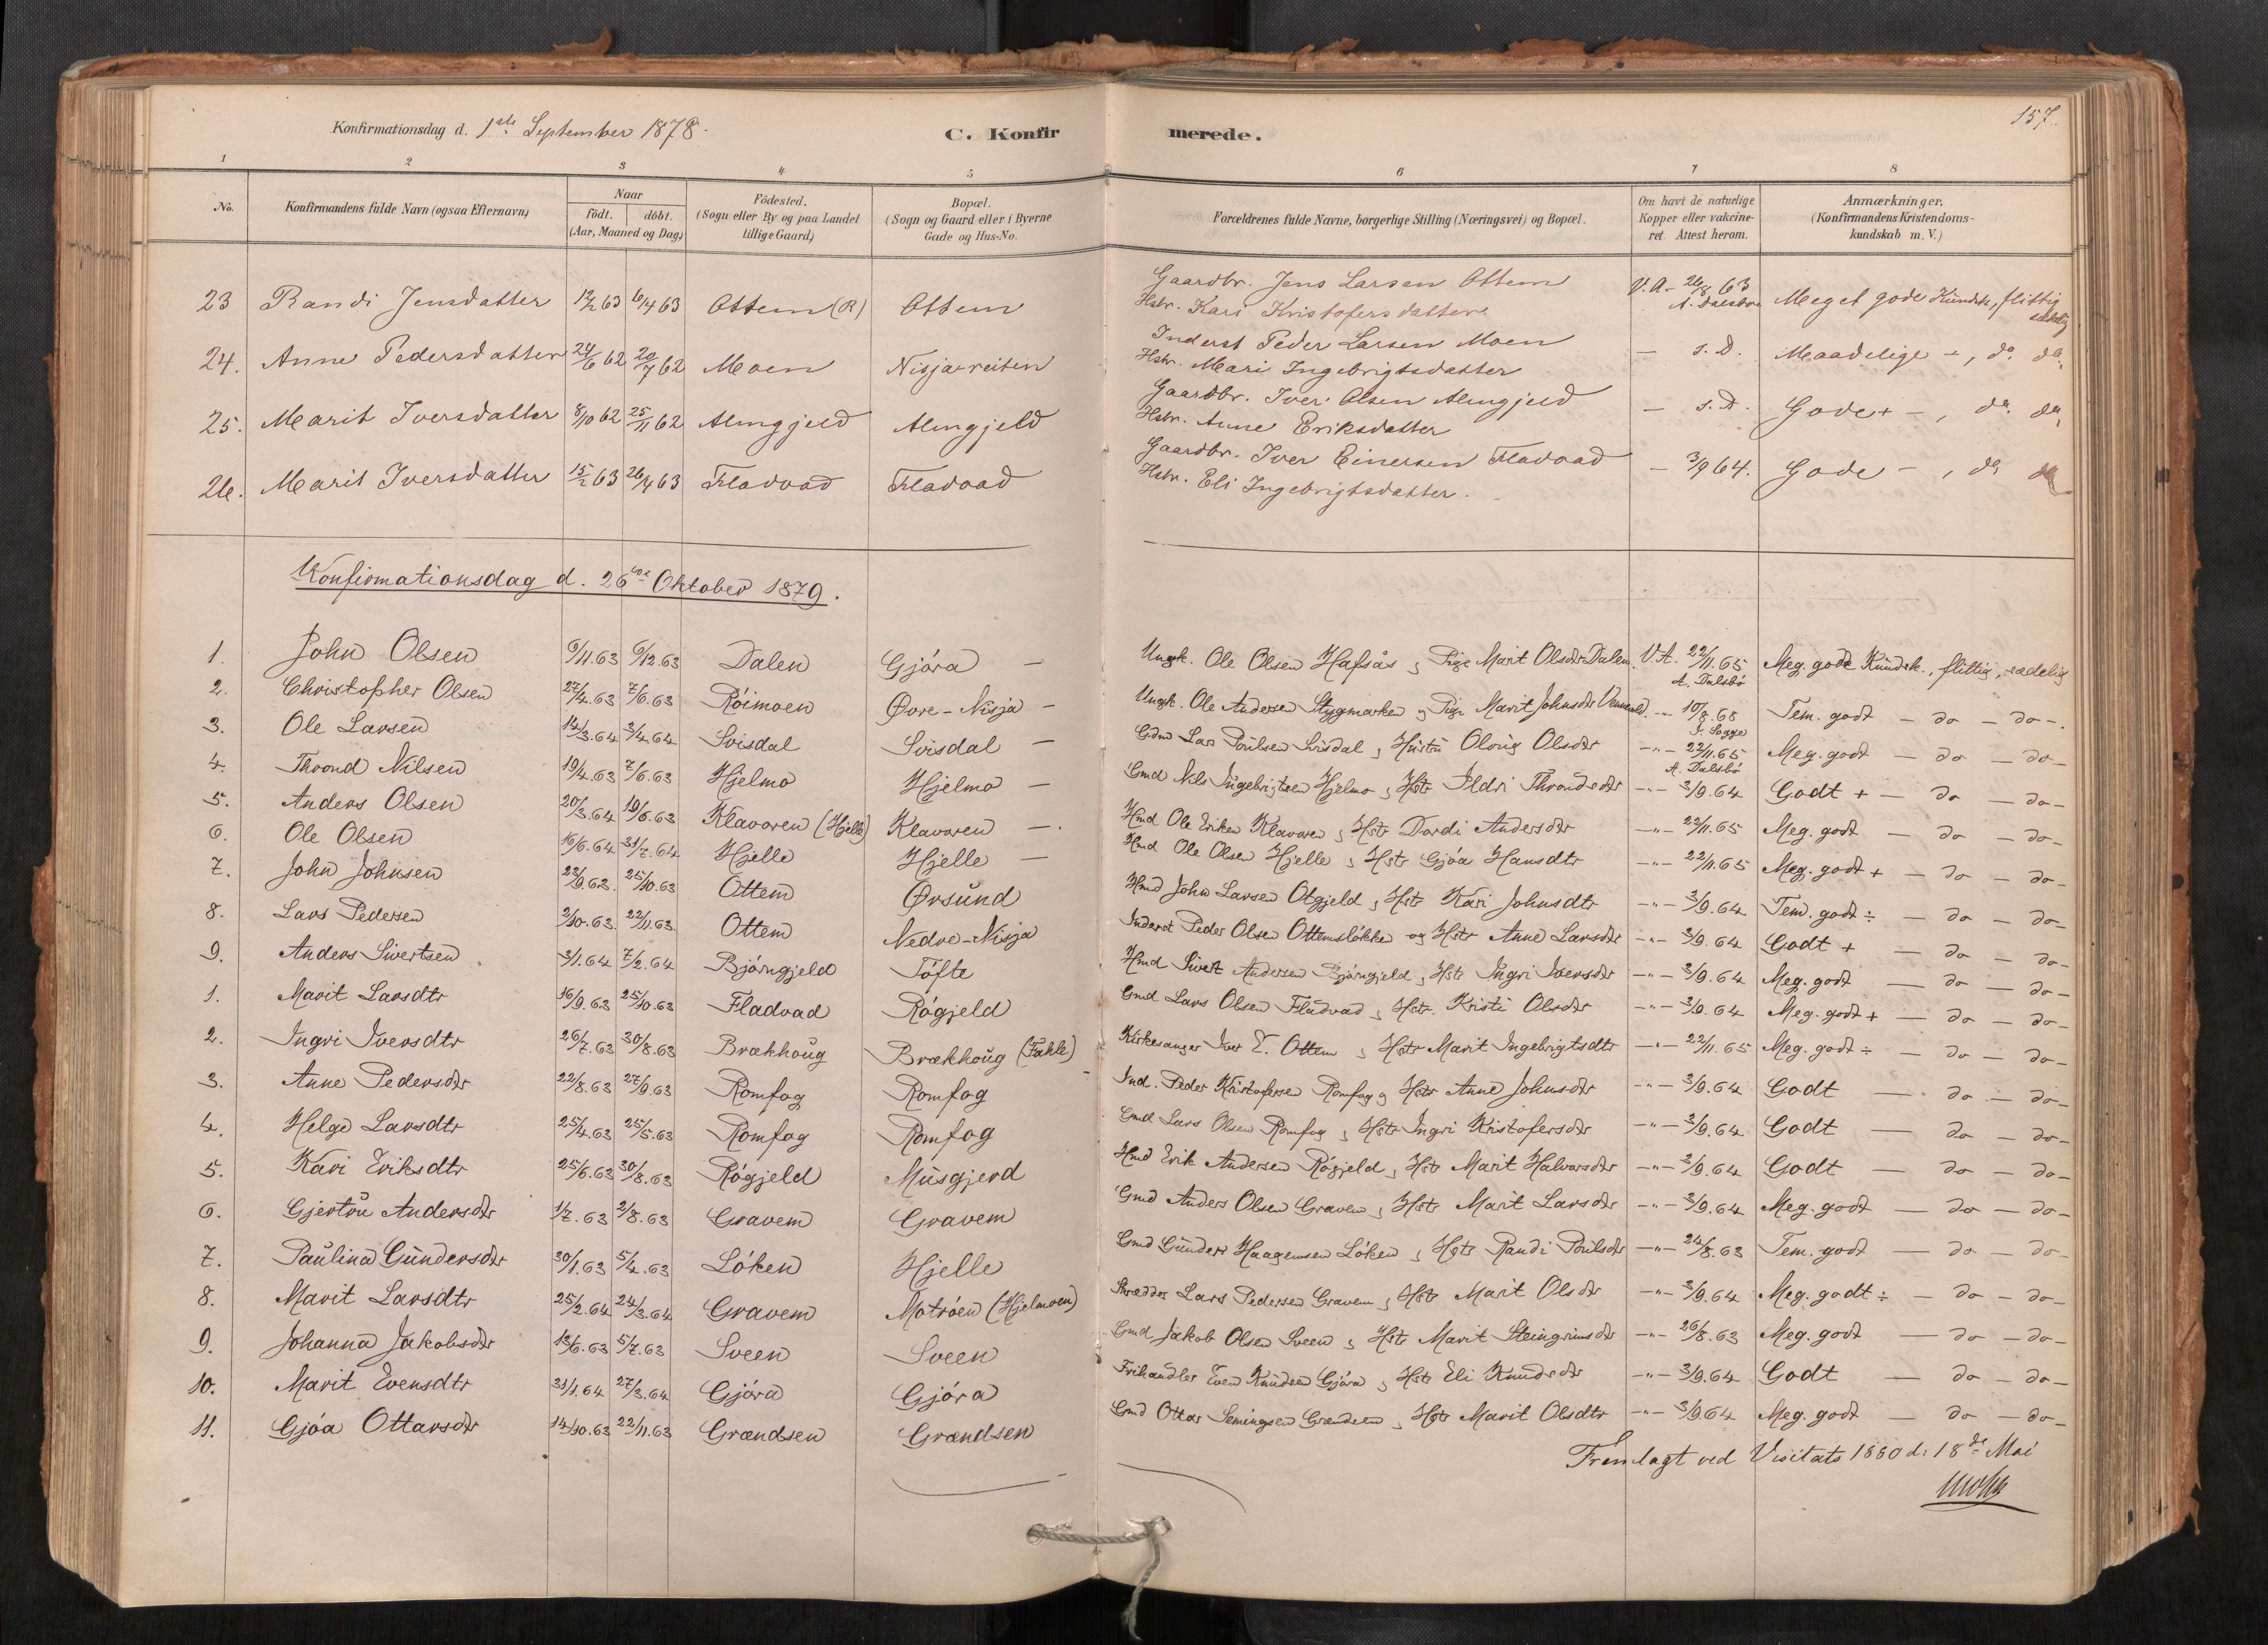 157.
Konfirmationsdag d. 1ste September 1878.
C. Konfirmerede.
1 2 3 4 5 6 7 8
No. Konfirmandens fulde Navn (ogsaa Efternavn) Naar födt. döbt. (Aar, Maaned og Dag) Födested. (Sogn eller By og paa Landet tillige Gaard) Bopæl. (Sogn og Gaard eller i Byerne Gade og Hus-No. Forældrenes fulde Navne, borgerlige Stilling (Næringsvei) og Bopæl. Om havt de naturlige Kopper eller vakcineret. Attest herom. Anmærkninger. (Konfirmandens Kristendomskundskab m. V.)
23 Randi Jensdatter 12/2 63 6/4 63 Ottem (R) Ottem Gaardbr. Jens Larsen Ottem Hstr. Kari Kristofersdatter V.A. 26/8 63 A. Dalsbøe Meget gode Kundsk, flittig sædelig
24. Anne Pedersdatter 24/6 62 20/7 62 Moen Nisjareiten Inderst Peder Larsen Moen Hstr. Mari Ingebrigtsdatter — s. D. Maadelige -, do. do.
25. Marit Iversdatter 8/10 62 25/11 62 Almgjeld Almgjeld Gaardbr. Iver Olsen Almgjeld Hstr. Anne Eriksdatter — s. D. Gode + -, do. do.
26. Marit Iversdatter 15/2 63 26/4 63 Fladvad Fladvad Gaardbr. Iver Einersen Fladvad Hstr. Eli Ingebrigtsdatter. — 3/9 64. Gode -, do do
Konfirmationsdag d. 26de Oktober 1879.
1. John Olsen 6/11.63 6/12.63 Dalen Gjöra — Ungk. Ole Olsen Hafsås, Pige Marit Olsdtr Dalen. V.A. 22/11.65 A. Dalsbö Meg. gode Kundsk., flittig, sædelig
2. Christopher Olsen 27/4.63 7/6.63 Röimoen Øvre-Nisja — Ungk. Ole Andersen Stygmarken og Pige Marit Johnsdtr -"- 10/8.68 Tem. godt — do — do -.
3. Ole Larsen 14/3.64 3/4.64 Svisdal Svisdal — Gdmd Lars Poulsen Svisdal, Hustru Olaug Olsdtr -"- 22/11.65 A. Dalsbö Meg. godt — do — do -
4. Thrond Nilsen 19/4.63 7/6.63 Hjelmo Hjelmo — Gmd Nils Ingebrigtsen Hjelmo, Hstr Ildri Throndsdtr -"- 3/9.64 Godt + — do — do -
5. Anders Olsen 20/3.64 19/6.63 Klavoren (Hjelle) Klavoren —. Hmd Ole Eriksen Klavoren, Hstr Dordi Andersdtr -"- 22/11.65 Meg. godt — do — do -
6. Ole Olsen 16/6.64 31/7.64 Hjelle Hjelle — Hmd Ole Olsen Hjelle, Hstr Gjöa Hansdtr -"- 22/11.65 Meg. godt + — do — do -
7. John Johnsen 23/9.63. 25/10.63 Ottem Ørsund Hmd John Larsen Otgjeld, Hstr Kari Johnsdtr -"- 3/9.64 Tem. godt ÷ — do — do -
8. Lars Pedersen 2/10.63. 22/11.63. Ottem Nedre-Nisja Inderst Peder Olsen Ottemslökke og Hstr Anne Larsdtr -"- 3/9.64 Godt + — do — do -
9. Anders Sivertsen 3/1.64 7/2.64 Björngjeld Töfte Hmd Sivert Andersen Björngjeld, Hstr Ingri Iversdtr -"- 3/9.64 Meg. godt — do — do -
1. Marit Larsdtr 16/9.63 25/10.63 Fladvad Rögjeld Gmd Lars Olsen Fladvad, Hstr. Kristi Olsdtr -"- 3/9.64 Meg. godt + — do — do -
2. Ingri Iversdtr 26/7.63 30/8.63 Brækhoug Brækhoug (Fahle) Kirkesanger Iver E. Ottem, Hstr Marit Ingebrigtsdtr -"- 22/11.65 Meg. godt ÷ — do — do -
3. Anne Pedersdtr 22/8.63 27/9.63 Romfog Romfog Ind. Peder Kristofersen Romfog, Hstr Anne Johnsdtr -"- 3/9.64 Godt — do — do -
4. Helge Larsdtr 25/4.63 25/5.63 Romfog Romfog Gmd Lars Olsen Romfog, Hstr Ingri Kristofersdtr -"- 3/9.64 Godt — do — do -
5. Kari Eriksdtr 25/6.63 30/8.63 Rögjeld Musgjerd Hmd Erik Andersen Rögjeld, Hstr Marit Halvorsdtr -"- 3/9.64 Godt — do — do -
6. Gjertru Andersdtr 1/7.63 2/8.63 Gravem Gravem Gmd Anders Olsen Gravem, Hstr Marit Larsdtr -"- 3/9.64 Meg. godt — do — do -
7. Paulina Gundersdtr 30/1.63 5/4.63 Löken Hjelle Gmd Gunder Haagensen Löken, Hstr Randi Poulsdtr -"- 24/8.63 Tem. godt — do — do -
8. Marit Larsdtr 25/2.64 24/3.64 Gravem Motröen (Hjelmoen) Skrædder Lars Pedersen Gravem, Hstr Marit Olsdtr -"- 3/9.64 Meg. godt ÷ — do — do -
9. Johanna Jakobsdtr 13/6.63 5/7.63 Sveen Sveen Gmd Jakob Olsen Sveen, Hstr Marit Steingrimsdtr -"- 26/8.63 Meg. godt — do — do -
10. Marit Evensdtr 31/1.64 27/3.64 Gjöra Gjöra Frihandler Even Knudsen Gjöra, Hstr Eli Knudsdtr -"- 3/9.64 Godt — do — do -
11. Gjöa Ottarsdtr 14/10.63 22/11.63 Grændsen Grændsen Gmd Ottar Semingsen Grændsen, Hstr Marit Olsdtr -"- 3/9.64 Meg. godt — do — do -
Fremlagt ved Visitats 1880 d: 18de Mai